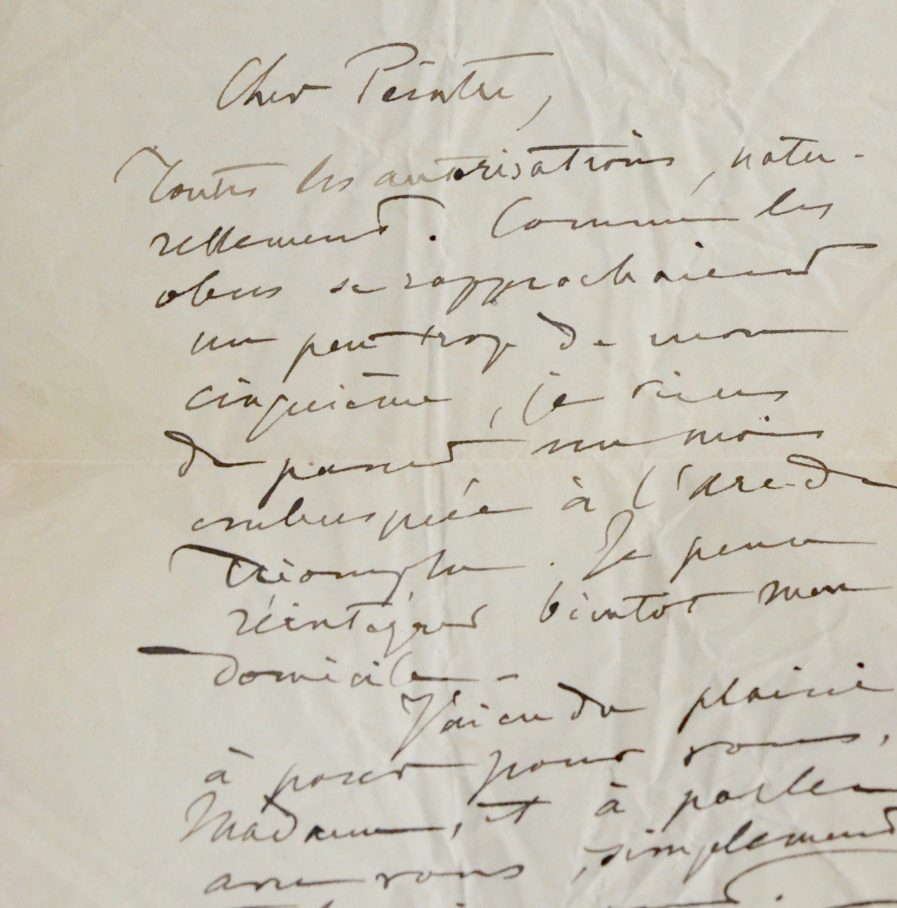 Cher Peintre,
Toutes les autorisations, natu-
rellement. Comme les
obus se rapprochaient
un peu trop de mon
cinquième, je viens
de passer un mois
embusquée à l'Arc-de
Triomphe. Je pense
réintégrer bientôt mon
domicile -
J'ai eu du plaisir
à poser pour vous,
Madame, et à parler
avec vous, simplement